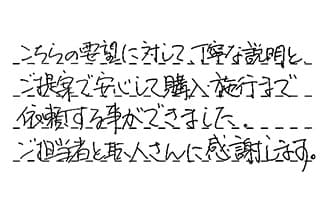 こちらの要望に対して、丁寧な説明と
ご提案で安心して購入・施行まで
依頼する事ができました。
ご担当者と職人さんに感謝します。